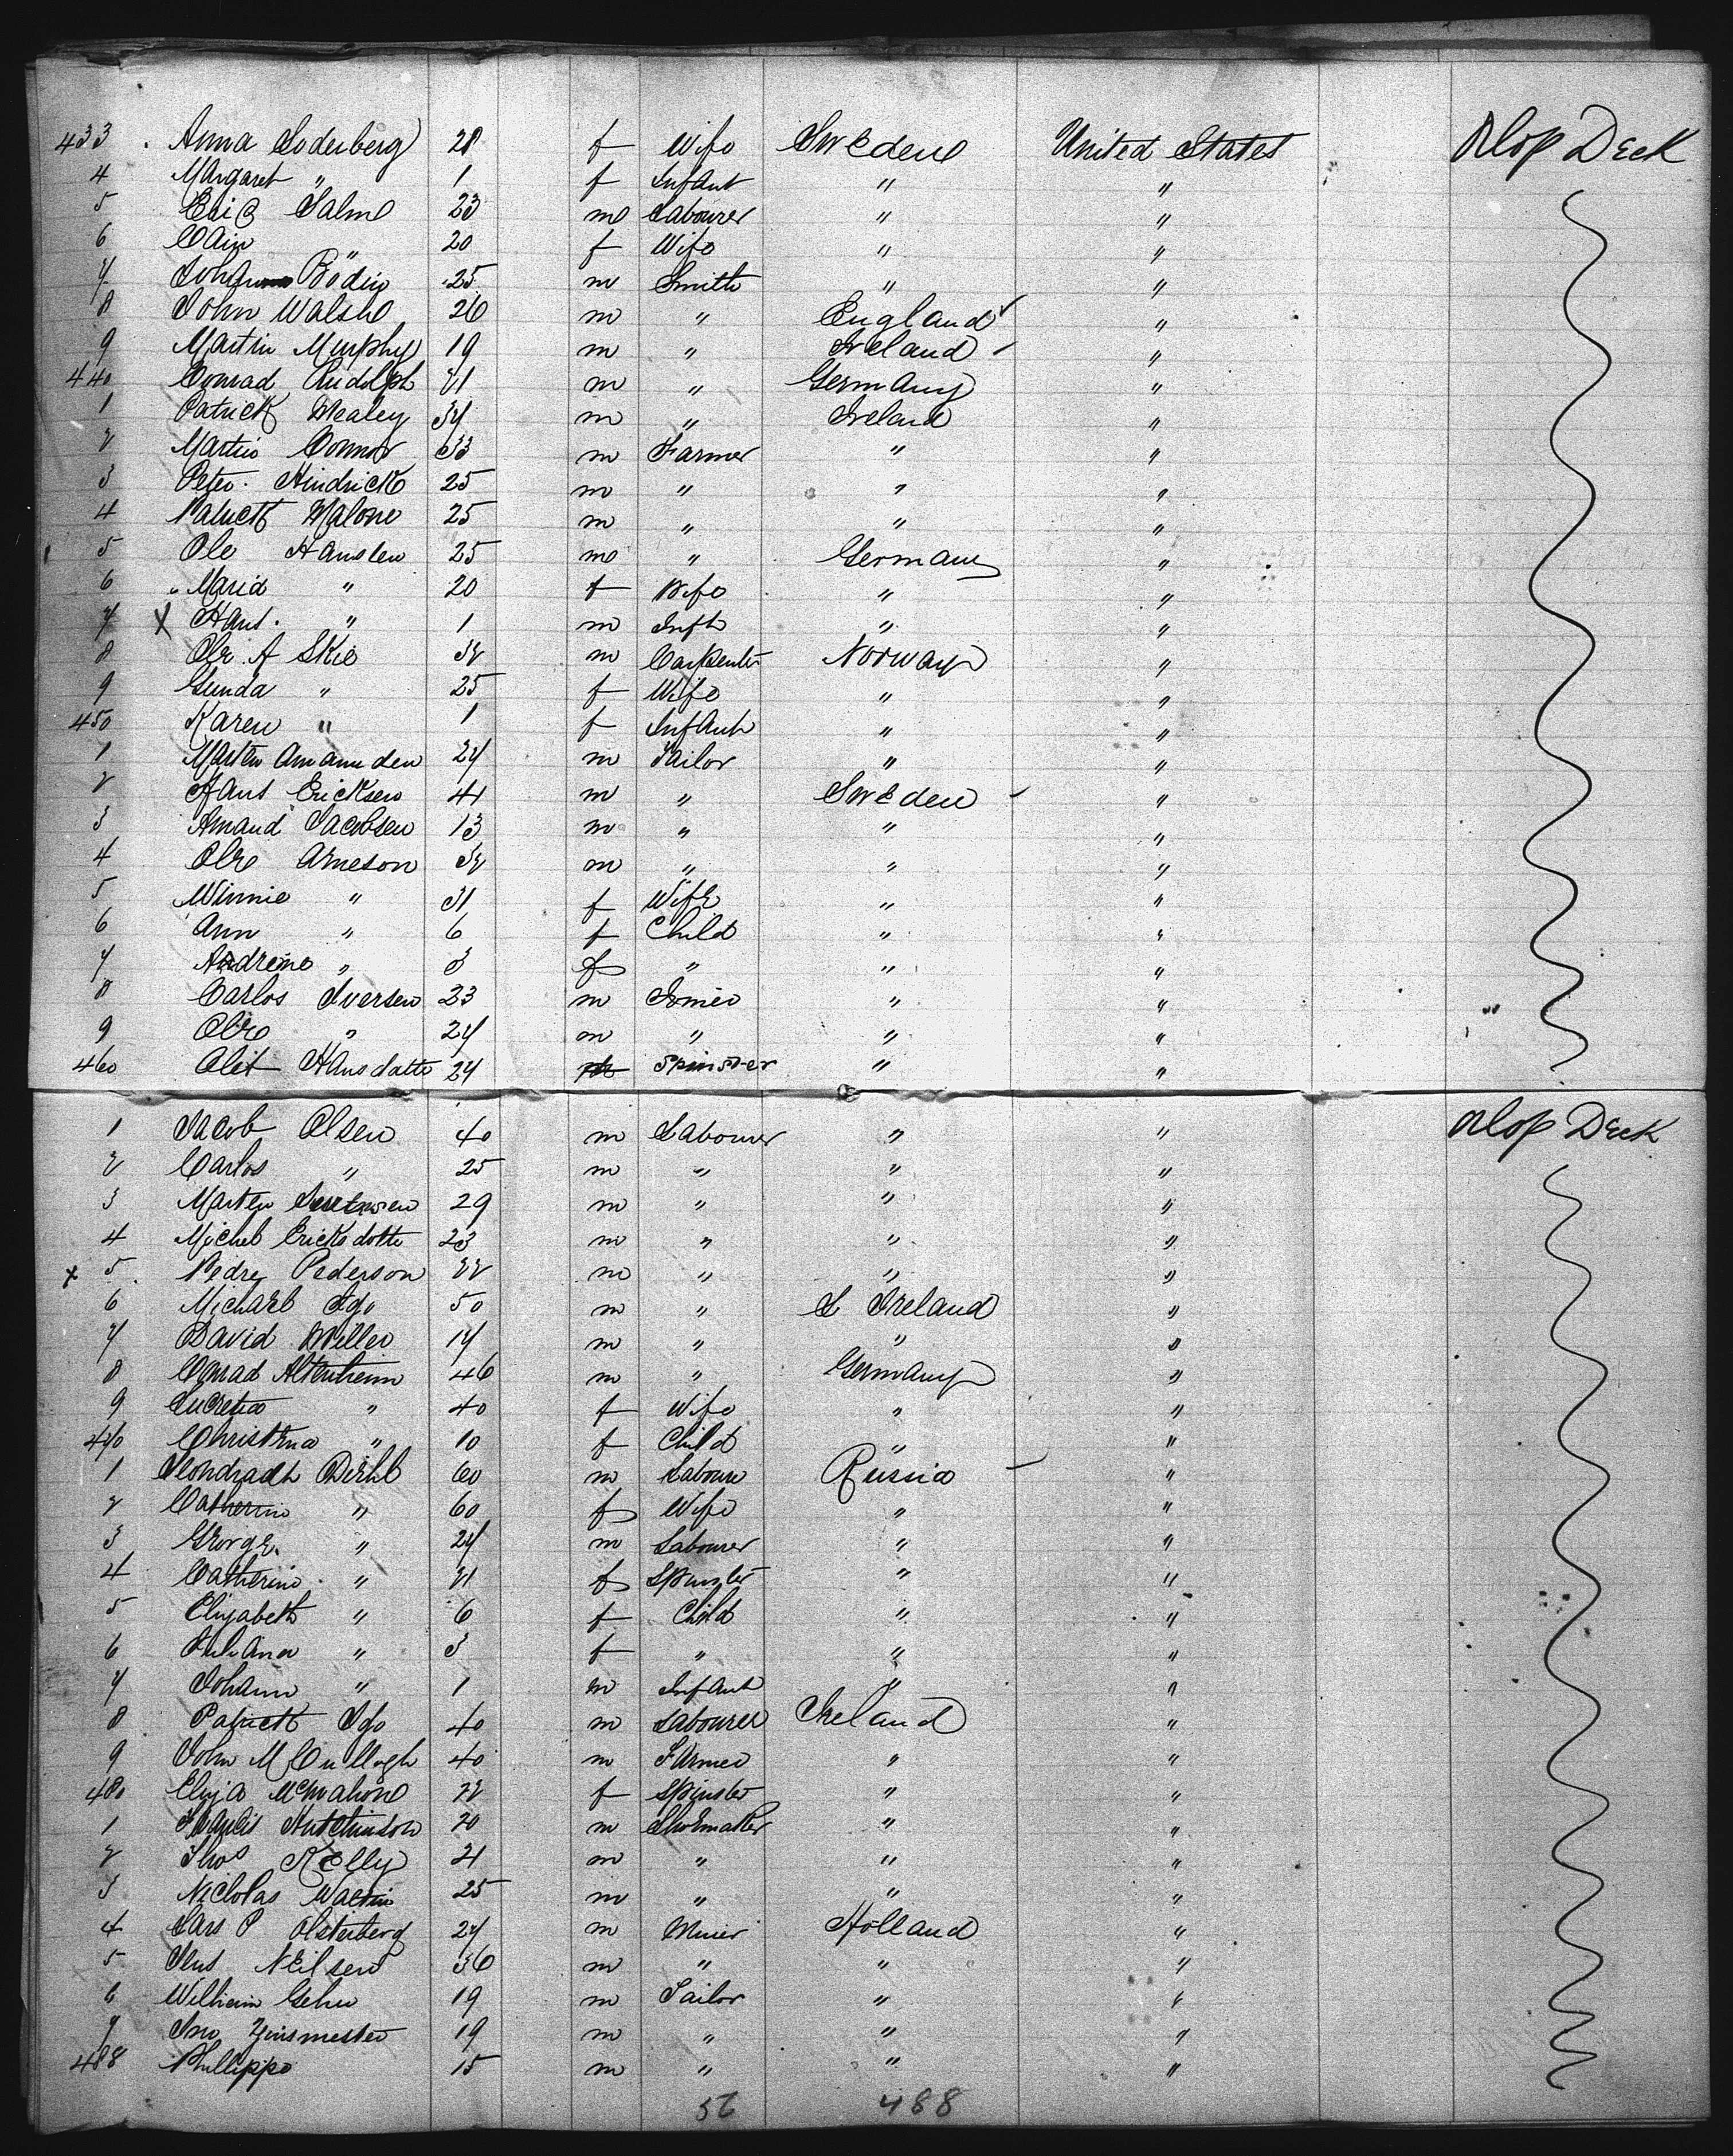 433 Anna Soderberg 28 f Wife Sweden United States Orlop Deck
4 Margaret " 1 f Infant " "
5 Eric Salme 23 m Labourer " "
6 Cain " 20 f Wife " "
7 Johann Bodin 25 m Smith " "
8 John Walsh 26 m " England "
9 Martin Murphy 19 m " Ireland "
440 Conrad Rudolph 21 m " Germany "
1 Patrick Mealey 34 m " Ireland "
2 Martin Connor 33 m Farmer " "
3 Peter Hindrick 25 m " " "
4 Patrick Malone 25 m " " "
5 Ole Hansten 25 m " Germany "
6 Maria " 20 f Wife " "
7 X Hans " 1 m Inft " "
8 Ole A Skie 32 m Carpenter Norway "
9 Gunda " 25 f Wife " "
450 Karen " 1 f Infant " "
1 Marten Amamuden 24 m Tailor " "
2 Hans Ericksen 41 m " Sweden "
3 Amand Jacobsen 13 m " " "
4 Ole Arneson 32 m " " "
5 Winnie " 31 f Wife " "
6 Ann " 6 f Child " "
7 Andrene " 3 f " " "
8 Carlos Iversen 23 m " "
9 Ole " 24 m " " "
460 Olit Hansdatte 24 Spinster " "
1 Jacob Olsen 40 m Labourer " " Orlop Deck
2 Carlos " 25 m " " "
3 Marten 29 m " " "
4 Michel Ericksdotte 23 m " " "
x 5 Pedre Pederson 22 m " " "
6 Michael Igo 50 m " Ireland "
7 David Miller 17 m " " "
8 Conrad Altenheim 46 m " Germany "
9 Lucretia " 40 f Wife " "
470 Christena " 10 f Child " "
1 Diehl 60 m Laboure Russia "
2 Catherine " 60 f Wife " "
3 George " 24 m Labourer " "
4 Catherine " 21 f Spinster " "
5 Elizabeth " 6 f Child " "
6 Juliana " 3 f " " "
7 Johann " 1 m Infant " "
8 Patrick Igo 40 m Labourer Ireland "
9 John McCullogh 40 m Farmer " "
480 Eliza McMahone 22 f Spinster " "
1 Francis Hutchinson 20 m Shoemaker " "
2 Thos Kelly 21 m " " "
3 Nicholas 25 m " " "
4 Lars P Olsterberg 24 m Miner Holland "
5 Jens Neilsen 36 m " " "
6 Wilheim Gehn 19 m Tailor " "
7 Jno Zinsmester 19 m " " "
488 Phillippo 15 m " " "
56 488